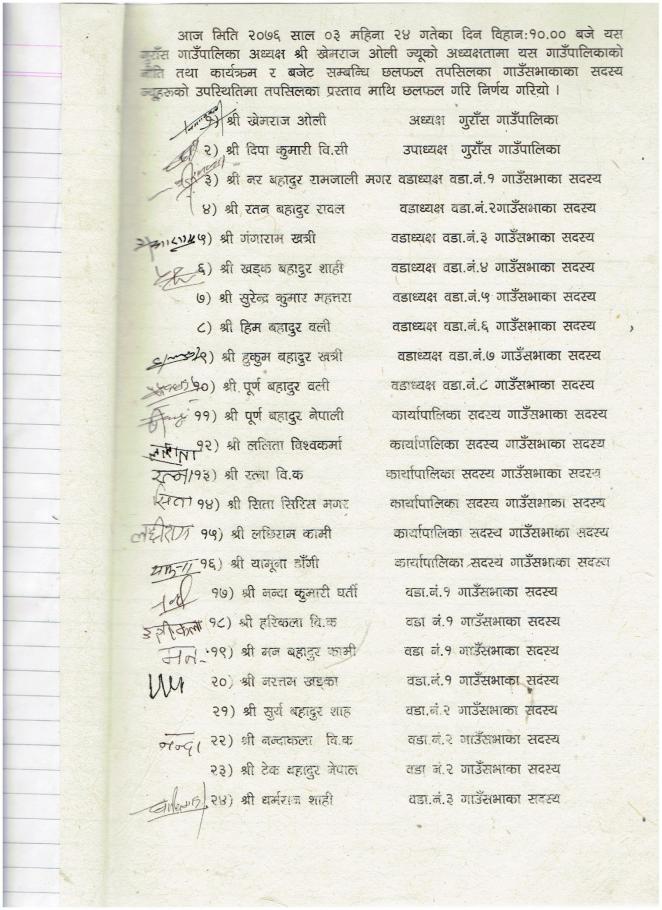 आज मिति २०७६ साल ०३ महिना २४ गतेका दिन विहान:१०.०० बजे यस
गुराँस गाउँपालिका अध्यक्ष श्री खेमराज ओली ज्यूको अध्यक्षतामा यस गाउँपालिकाको
नीति तथा कार्यक्रम र बजेट सम्बन्धि छलफल तपसिलका गाउँसभाकाका सदस्य
ज्यूहरूको उपस्थितिमा तपसिलका प्रस्ताव माथि छलफल गरि निर्णय गरियो ।
१) श्री खेमराज ओली अध्यक्ष गुराँस गाउँपालिका
२) श्री दिपा कुमारी वि.सी उपाध्यक्ष गुराँस गाउँपालिका
३) श्री नर बहादुर रामजाली मगर वडाध्यक्ष वडा.नं.१ गाउँसभाका सदस्य
४) श्री रतन बहादुर रावल वडाध्यक्ष वडा.नं.२गाउँसभाका सदस्य
५) श्री गंगाराम खत्री वडाध्यक्ष वडा.नं.३ गाउँसभाका सदस्य
६) श्री खड्क बहादुर शाही वडाध्यक्ष वडा.नं.४ गाउँसभाका सदस्य
७) श्री सुरेन्द्र कुमार महत्तरा वडाध्यक्ष वडा.नं.५ गाउँसभाका सदस्य
८) श्री हिम बहादुर वली वडाध्यक्ष वडा.नं.६ गाउँसभाका सदस्य
९) श्री हुकुम बहादुर खत्री वडाध्यक्ष वडा.नं.७ गाउँसभाका सदस्य
१०) श्री पूर्ण बहादुर वली वडाध्यक्ष वडा.नं.८ गाउँसभाका सदस्य
११) श्री पूर्ण बहादुर नेपाली कार्यापालिका सदस्य गाउँसभाका सदस्य
१२) श्री ललिता विश्वकर्मा कार्यापालिका सदस्य गाउँसभाका सदस्य
रत्ना १३) श्री रत्ना वि.क कार्यापालिका सदस्य गाउँसभाका सदस्य
सिता १४) श्री सिता सिरिस मगर कार्यापालिका सदस्य गाउँसभाका सदस्य
लछीराम १५) श्री लछिराम कामी कार्यापालिका सदस्य गाउँसभाका सदस्य
१६) श्री यामूना डाँगी कार्यापालिका सदस्य गाउँसभाका सदस्य
१७) श्री नन्दा कुमारी घर्ती वडा.नं.१ गाउँसभाका सदस्य
१८) श्री हरिकला वि.क वडा नं.१ गाउँसभाका सदस्य
मन १९) श्री मन बहादुर कामी वडा नं.१ गाउँसभाका सदस्य
२०) श्री नरत्तम खड्का वडा.नं.१ गाउँसभाका सदस्य
२१) श्री सुर्य बहादुर शाह वडा.नं.२ गाउँसभाका सदस्य
नन्दा २२) श्री नन्दाकला वि.क वडा.नं.२ गाउँसभाका सदस्य
२३) श्री टेक बहादुर नेपाल वडा नं.२ गाउँसभाका सदस्य
२४) श्री धर्मराज शाही वडा.नं.३ गाउँसभाका सदस्य